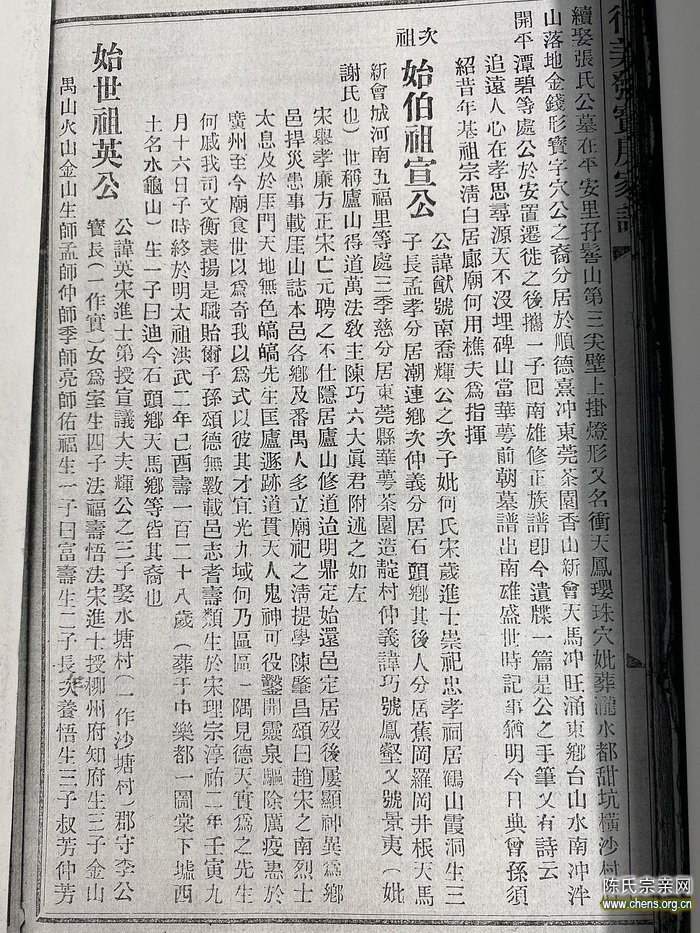 續娶張氏公墓在平安里孖髻山第三尖壁上掛燈形又名衝天鳳瓔珠穴妣葬瀧水都甜坑橫沙村
山落地金錢形寶字穴公之裔分居於順德熹冲東莞茶園香山新會天馬冲旺涌東鄉台山水南冲泮
開平潭碧等處公於安置遷徙之後攜一子回南雄修正族譜卽今遺牒一篇是公之手筆又有詩云
追遠人心在孝思尋源天不沒埋碑山當華蕚前朝墓譜出南雄盛世時記事猶明今日典曾孫須
紹昔年基祖宗清白居廊廟何用樵夫爲指揮
次祖
始伯祖宣公
公諱猷號南喬輝公之次子妣何氏宋歲進士崇祀忠孝祠居鶴山霞洞生三
子長孟孝分居潮連鄉次仲義分居石頭鄉其後人分居蕉岡羅岡井根天馬
新會城河南五福里等處三季慈分居東莞縣華蕚茶園造靛村仲義諱巧號鳳壑又號景夷（妣
謝氏也）世稱廬山得道萬法敎主陳巧六大眞君附述之如左
宋舉孝廉方正宋亡元聘之不仕隱居廬山修道迨明鼎定始還邑定居歿後屢顯神異爲鄉
邑捍災患事載厓山誌本邑各鄉及番禺人多立廟祀之淸提學陳肇昌頌曰趙宋之南烈士
太息及於厓門天地無色皜皜先生匡廬遯跡道貫天人鬼神可役鑿開靈泉驅除厲疫患於
廣州至今廟食世以爲奇我以爲式以彼其才宜光九域何乃區區一隅見德天實爲之先生
何戚我司文衡表揚是職貽爾子孫頌德無斁載邑志耆壽類生於宋理宗淳祐二年壬寅九
月十六日子時終於明太祖洪武二年己酉壽一百二十八歲（葬于中樂都一圖棠下墟西
土名水龜山）生一子曰迪今石頭鄉天馬鄉等皆其裔也
始世祖英公
公諱英宋進士第授宣議大夫輝公之三子娶水塘村（一作沙塘村）郡守李公
寳長（一作實）女爲室生四子法福壽悟法宋進士授柳州府知府生三子金山
禺山火山金山生師孟師仲師季師亮師佑福生一子曰富壽生二子長次養悟生三子叔芳仲芳
陈氏宗亲网
www.chens.org.cn